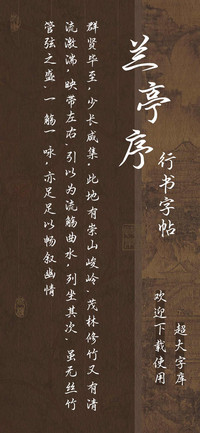 兰亭序
行书字帖
超大字库
欢迎下载使用
群贤毕至,少长咸集,此地有崇山峻岭、茂林修竹又有清
流激湍,映带左右、引以为流觞曲水,列坐其次、虽无丝竹
管弦之盛、一觞一咏,亦足足以畅叙幽情